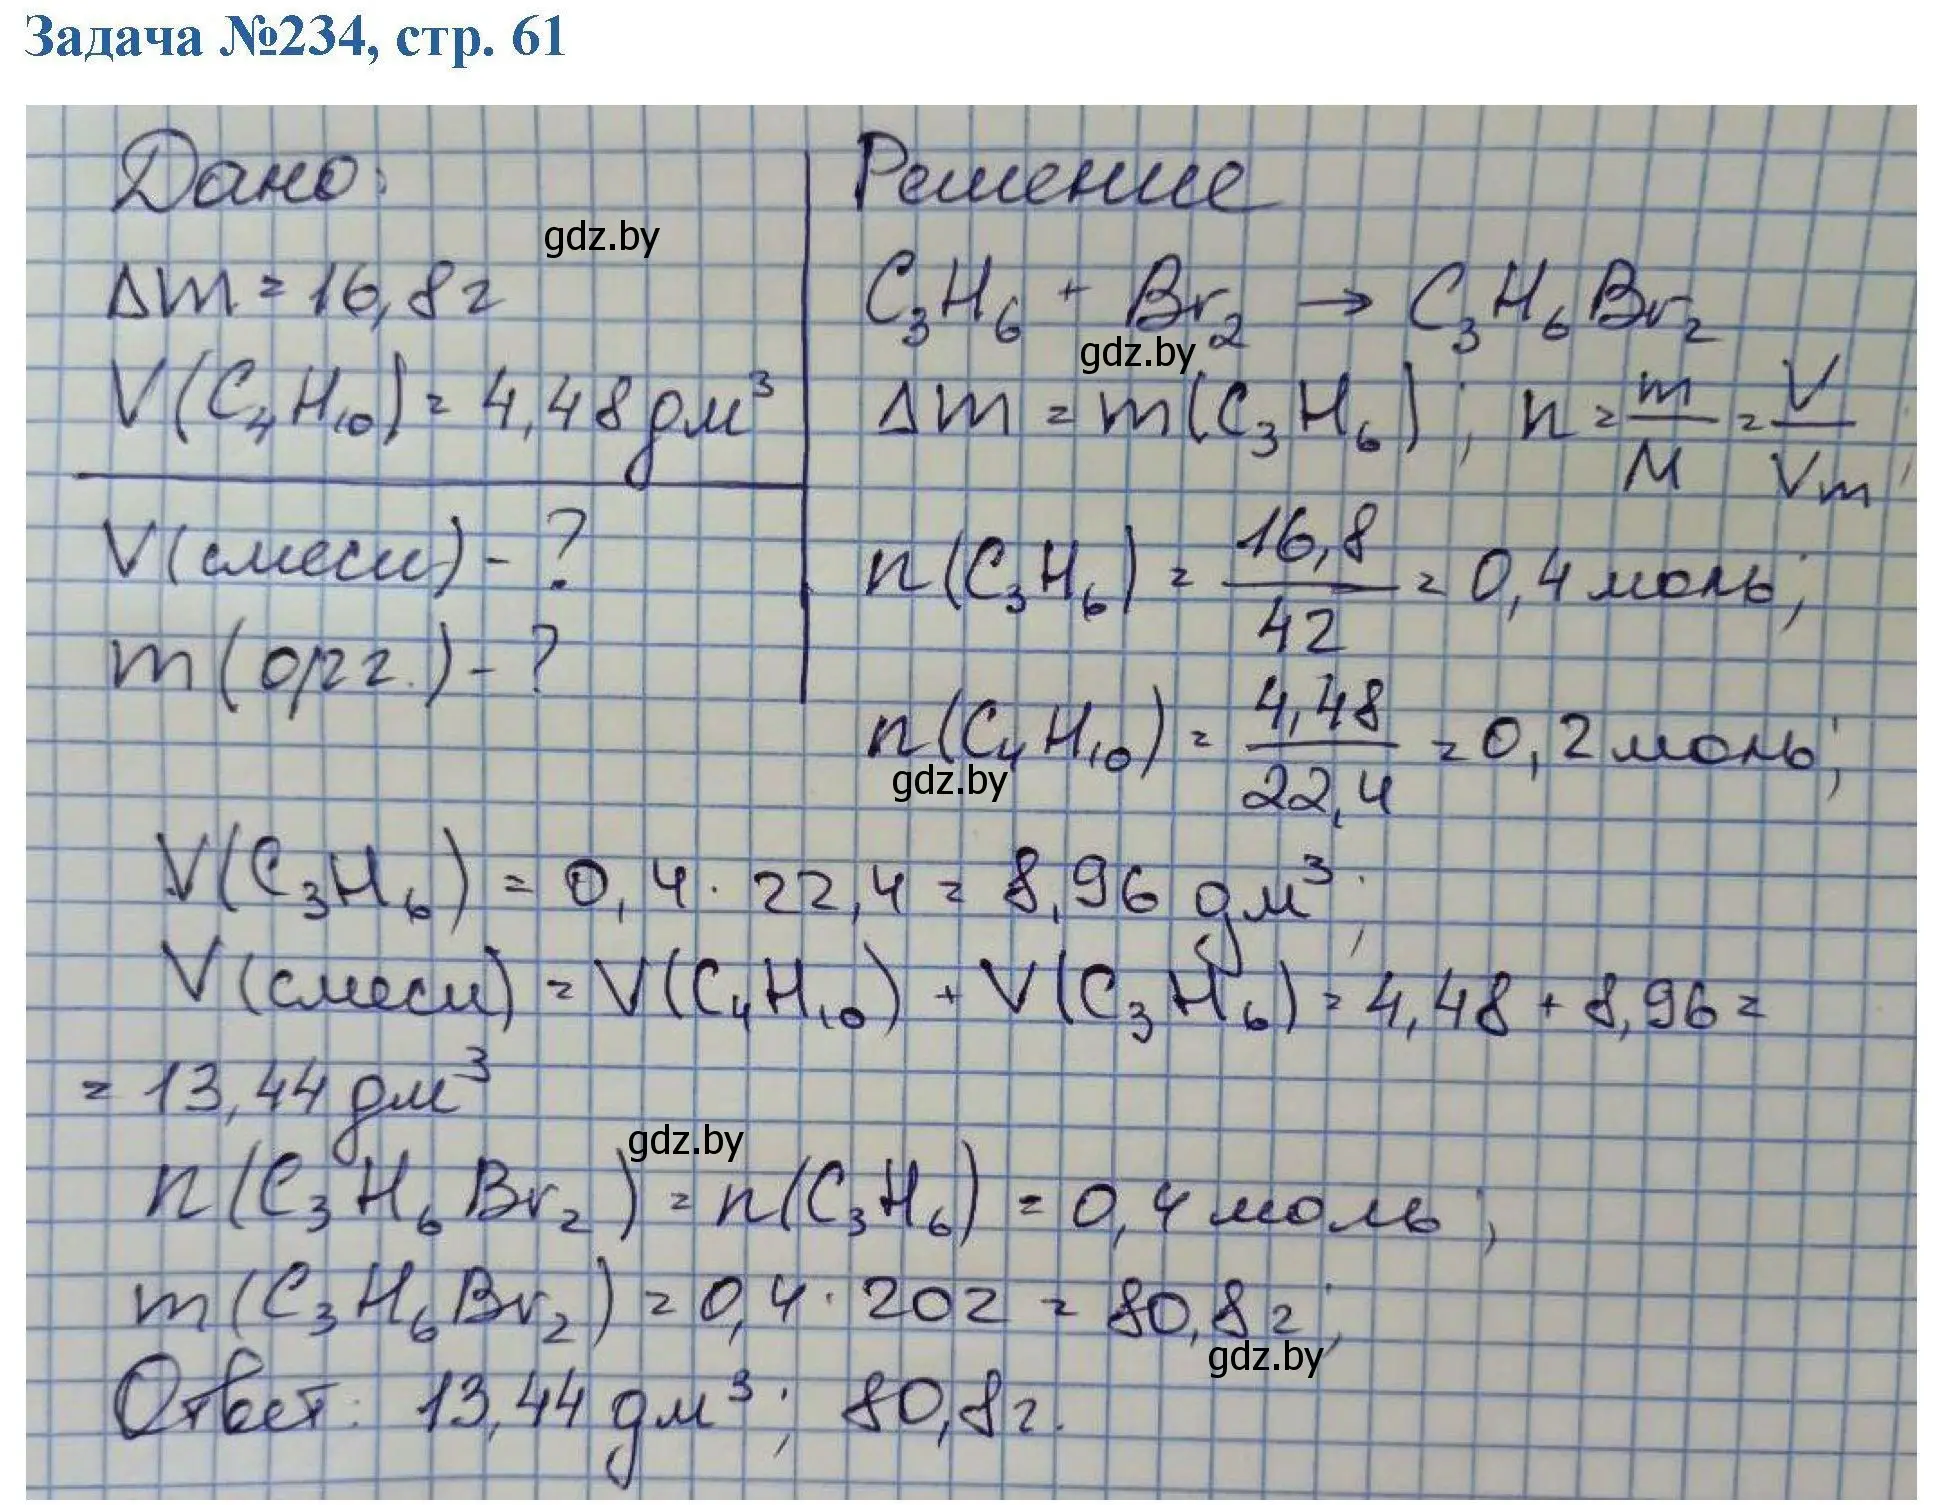 Задача №234, стр. 61
Дано:
gdz.by
Δm = 16,8 г
V(C₄H₁₀) = 4,48 дм³
V(смеси) - ?
m(орг.) - ?
Решение
C₃H₆ + Br₂ → C₃H₆Br₂
gdz.by
Δm = m(C₃H₆); n = m/M = V/Vm;
n(C₃H₆) = 16,8/42 = 0,4 моль;
n(C₄H₁₀) = 4,48/22,4 = 0,2 моль;
gdz.by
V(C₃H₆) = 0,4 · 22,4 = 8,96 дм³;
V(смеси) = V(C₄H₁₀) + V(C₃H₆) = 4,48 + 8,96 =
= 13,44 дм³
gdz.by
n(C₃H₆Br₂) = n(C₃H₆) = 0,4 моль;
m(C₃H₆Br₂) = 0,4 · 202 = 80,8 г;
gdz.by
Ответ: 13,44 дм³; 80,8 г.